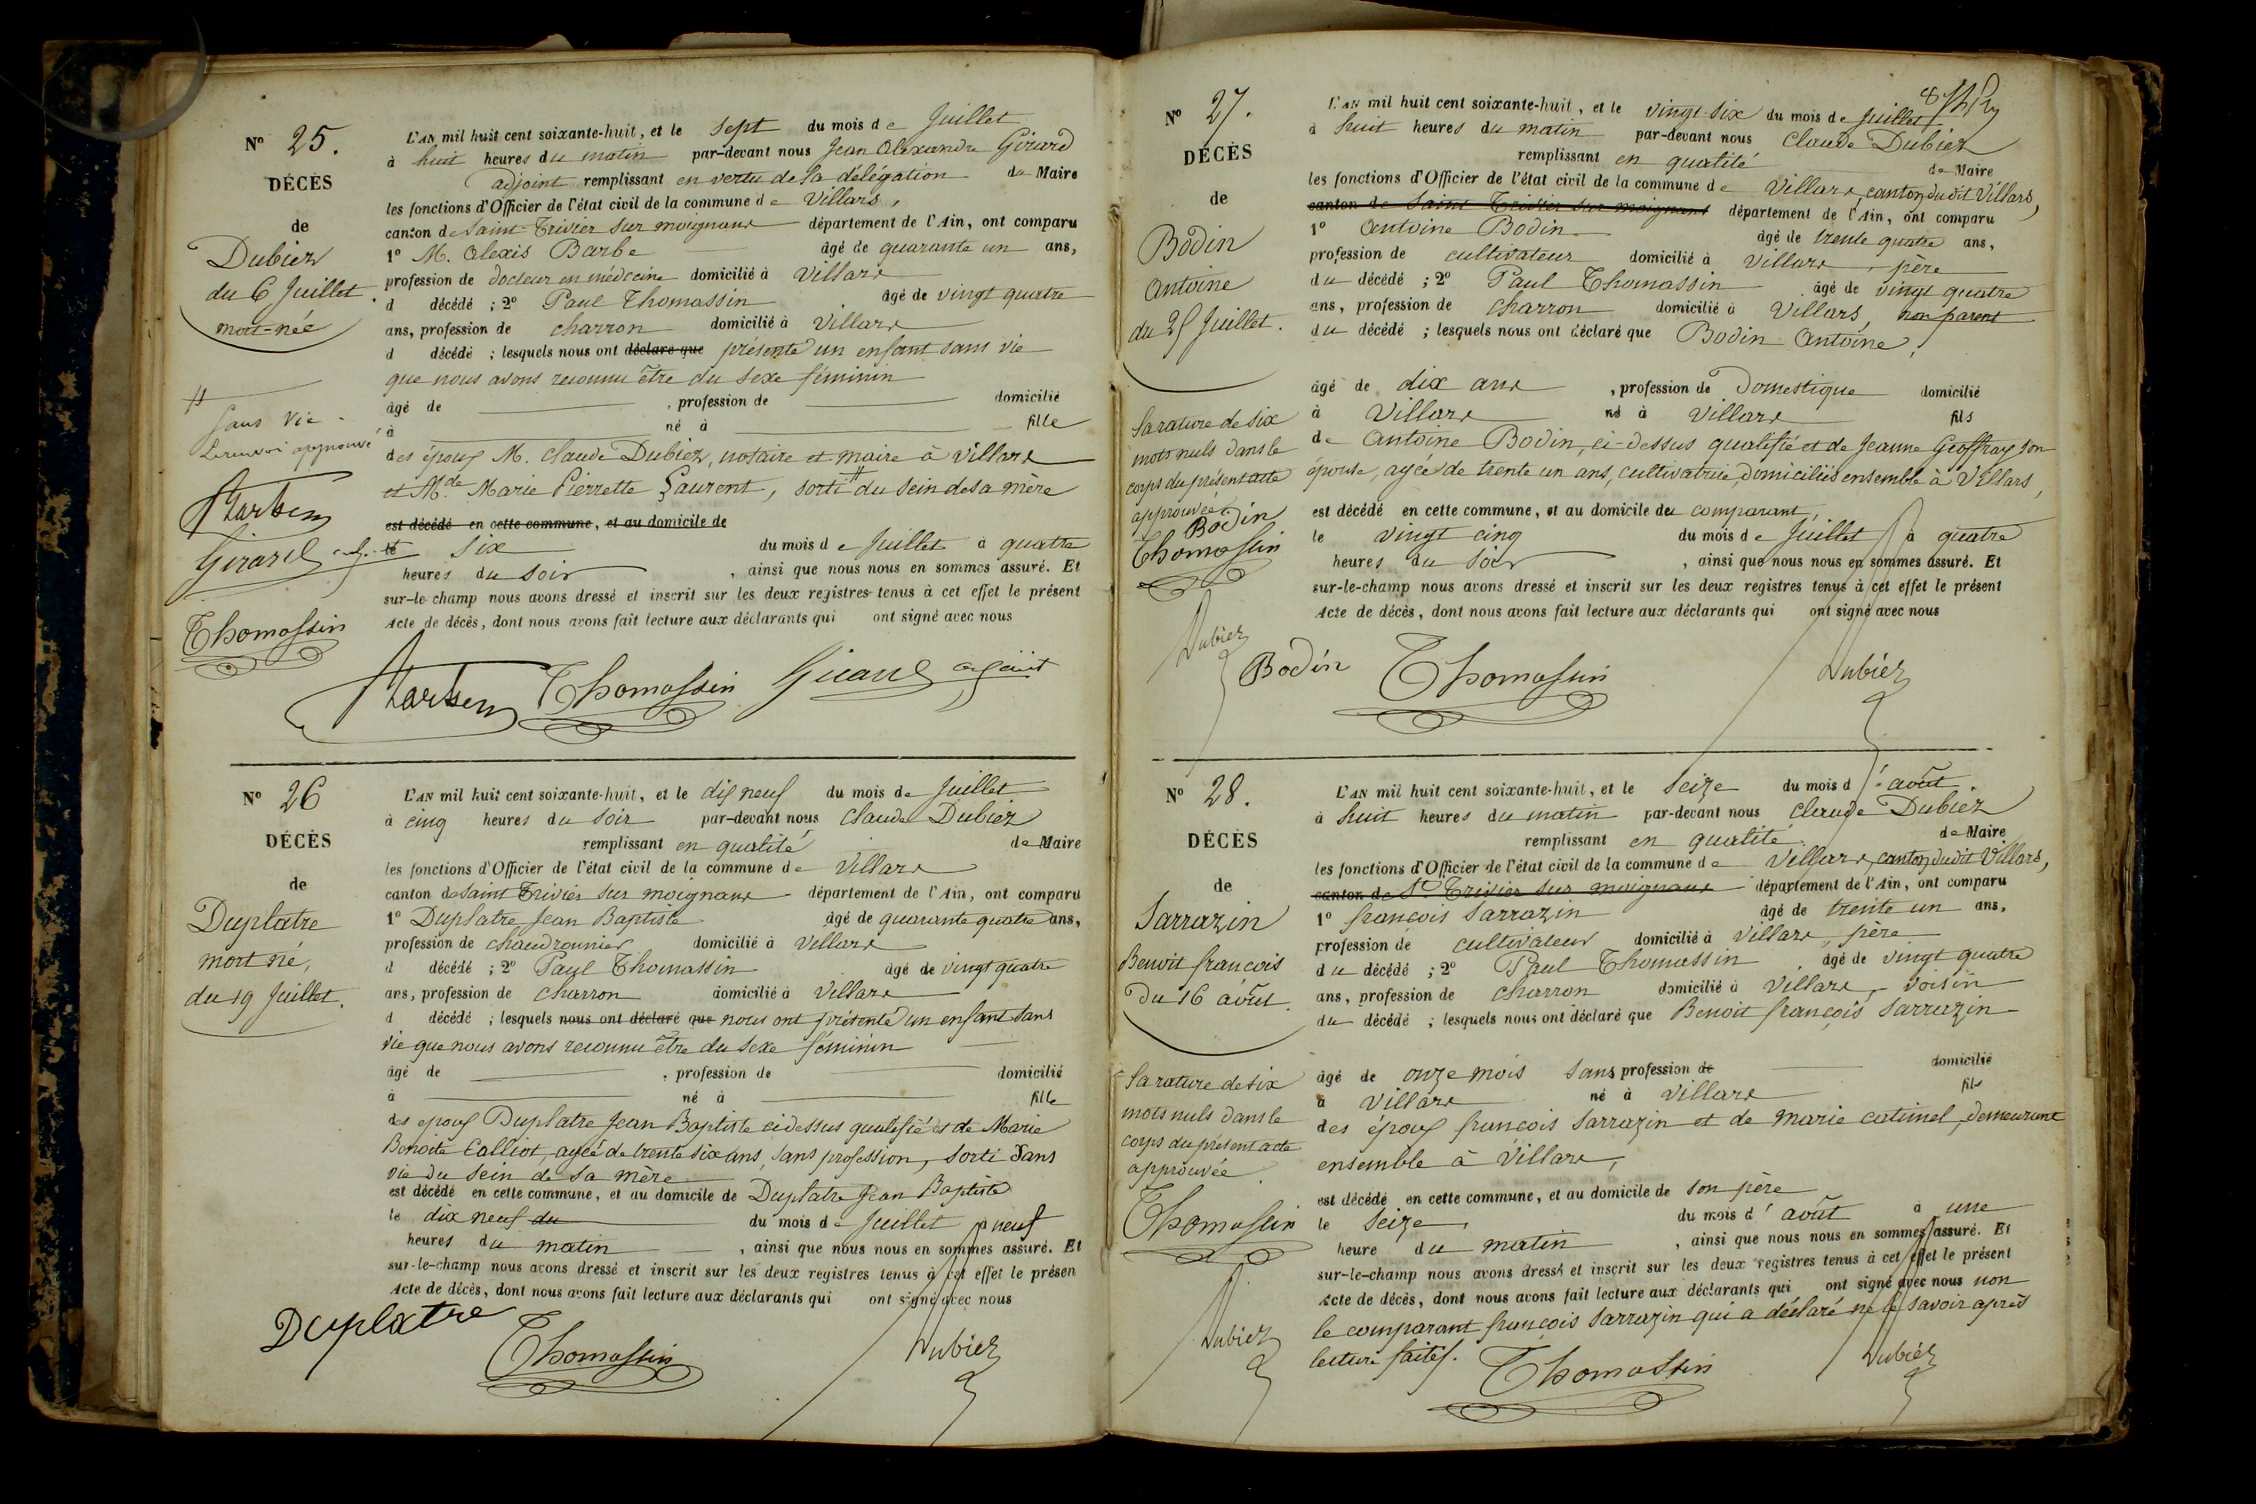 N° 25.
DÉCÈS
de
Dubiez
du 6 Juillet.
mort-née
#
Sans vie
Le renvoi approuvé
Girard adjt
Thomassin
L'AN mil huit cent soixante-huit, et le sept du mois de Juillet
à huit heures du matin par-devant nous Jean Alexandre Girard
adjoint remplissant en vertu de la délégation de Maire
les fonctions d'Officier de l'état civil de la commune de Villars,
canton de Saint Trivier sur moignans département de l'Ain, ont comparu
1° M. Alexis Barbe âgé de quarante un ans,
profession de docteur en médecine domicilié à Villars
d décédé ; 2° Paul Thomassin âgé de vingt quatre
ans, profession de charron domicilié à Villars
d décédé ; lesquels nous ont déclaré que présenté un enfant sans vie
que nous avons reconnu être du sexe féminin
âgé de , profession de domicilié
à né à fille
des époux M. Claude Dubiez, notaire et maire à Villars
et Mde Marie Pierrette Laurent, sorti # du sein de sa mère
est décédé en cette commune, et au domicile de
le six du mois de Juillet à quatre
heures du soir , ainsi que nous nous en sommes assuré. Et
sur-le-champ nous avons dressé et inscrit sur les deux registres tenus à cet effet le présent
Acte de décès, dont nous avons fait lecture aux déclarants qui ont signé avec nous
Thomassin Girard adjoint
N° 26
DÉCÈS
de
Duplatre
mort né,
du 19 Juillet.
L'AN mil huit cent soixante-huit, et le dix neuf du mois de Juillet
à cinq heures du soir par-devant nous Claude Dubiez
remplissant en qualité de Maire
les fonctions d'Officier de l'état civil de la commune de Villars
canton de Saint Trivier sur moignans département de l'Ain, ont comparu
1° Duplatre Jean Baptiste âgé de quarante quatre ans,
profession de chaudronnier domicilié à Villars
d décédé ; 2° Paul Thomassin âgé de vingt quatre
ans, profession de charron domicilié à Villars
d décédé ; lesquels nous ont déclaré que nous ont présenté un enfant sans
vie que nous avons reconnu être du sexe féminin
âgé de , profession de domicilié
à né à fille
des époux Duplatre Jean Baptiste ci dessus qualifié et de Marie
Benoite Calliot, agée de trente six ans, sans profession, sorti sans
vie du sein de sa mère
est décédé en cette commune, et au domicile de Duplatre Jean Baptiste
le dix neuf du du mois de Juillet à neuf
heures du matin , ainsi que nous nous en sommes assuré. Et
sur-le-champ nous avons dressé et inscrit sur les deux registres tenus à cet effet le présen
Acte de décès, dont nous avons fait lecture aux déclarants qui ont signé avec nous
Duplatre Thomassin Dubiez
8
N° 27.
DÉCÈS
de
Bodin
Antoine
du 25 Juillet.
La rature de six
mots nuls dans le
corps du présent acte
approuvée
Bodin
Thomassin
Dubiez
L'AN mil huit cent soixante-huit, et le vingt six du mois de Juillet
à huit heures du matin par-devant nous Claude Dubiez
remplissant en qualité de Maire
les fonctions d'Officier de l'état civil de la commune de Villars, canton dudit Villars,
canton de Saint Trivier sur moignans département de l'Ain, ont comparu
1° Antoine Bodin âgé de trente quatre ans,
profession de cultivateur domicilié à Villars, père
du décédé ; 2° Paul Thomassin âgé de vingt quatre
ans, profession de charron domicilié à Villars, non parent
du décédé ; lesquels nous ont déclaré que Bodin Antoine,
âgé de dix ans , profession de Domestique domicilié
à Villars né à Villars fils
de Antoine Bodin, ci-dessus qualifié et de Jeanne Geoffray son
épouse, agée de trente un ans, cultivatrice, domiciliés ensemble à Villars,
est décédé en cette commune, et au domicile du comparant,
le vingt cinq du mois de Juillet à quatre
heures du soir , ainsi que nous nous en sommes assuré. Et
sur-le-champ nous avons dressé et inscrit sur les deux registres tenus à cet effet le présent
Acte de décès, dont nous avons fait lecture aux déclarants qui ont signé avec nous
Bodin Thomassin Dubiez
N° 28.
DÉCÈS
de
Sarrazin
Benoit françois
du 16 août.
La rature de six
mots nuls dans le
corps du présent acte
approuvée.
Thomassin
Dubiez
L'AN mil huit cent soixante-huit, et le seize du mois d'août.
à huit heures du matin par-devant nous Claude Dubiez
remplissant en qualité de Maire
les fonctions d'Officier de l'état civil de la commune de Villars, canton dudit Villars,
canton de St Trivier sur moignans département de l'Ain, ont comparu
1° françois Sarrazin âgé de trente un ans,
profession de cultivateur domicilié à Villars, père
du décédé ; 2° Paul Thomassin âgé de vingt quatre
ans, profession de charron domicilié à Villars, voisin
du décédé ; lesquels nous ont déclaré que Benoit françois Sarrazin
âgé de onze mois sans profession de domicilié
à Villars né à Villars fils
des époux françois Sarrazin et de marie catinel, demeurant
ensemble à Villars,
est décédé en cette commune, et au domicile de son père
le seize, du mois d'août à une
heure du matin , ainsi que nous nous en sommes assuré. Et
sur-le-champ nous avons dressé et inscrit sur les deux registres tenus à cet effet le présent
Acte de décès, dont nous avons fait lecture aux déclarants qui ont signé avec nous non
le comparant françois Sarrazin qui a déclaré ne le savoir après
lecture faite.
Thomassin Dubiez